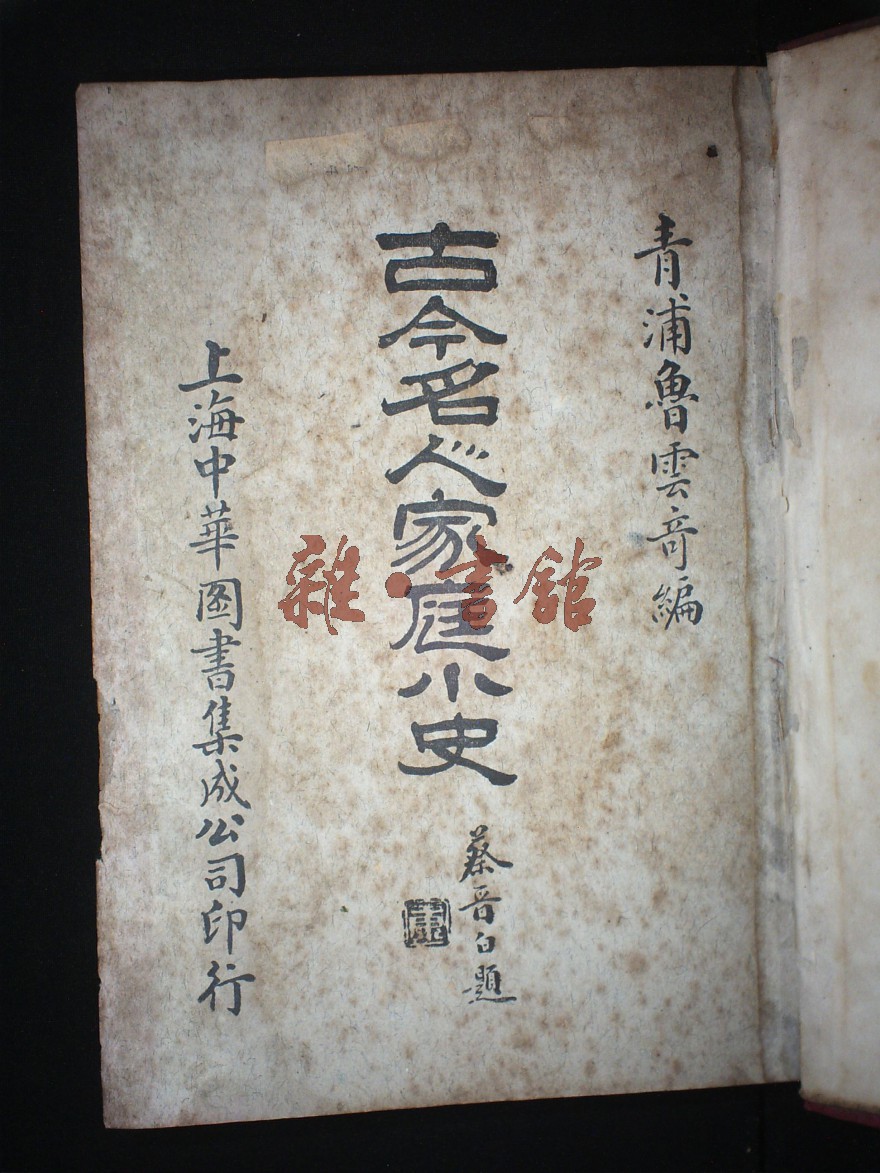 青浦魯雲奇編
古今名人家庭小史
蔡晋白題
上海中華圖書集成公司印行
雜·書館